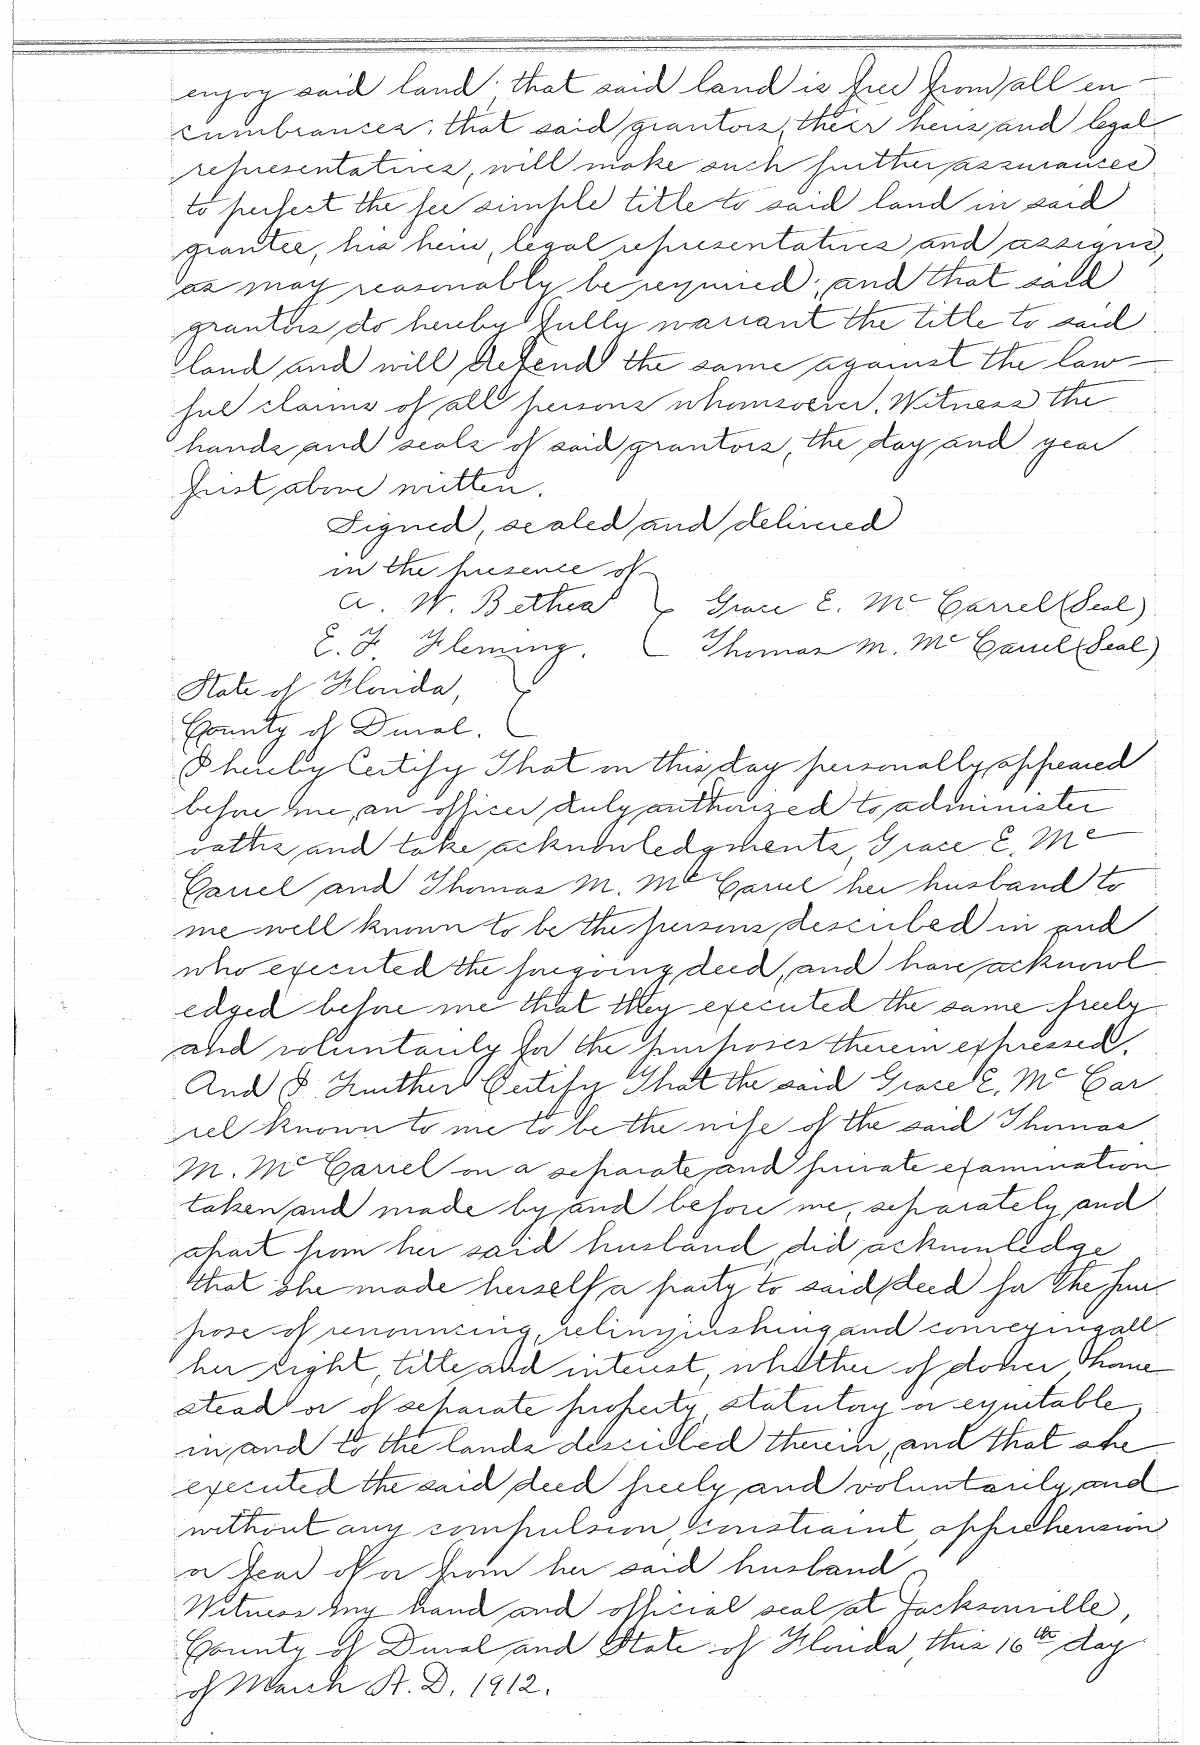 enjoy said land; that said land is free from all en-
cumbrances; that said grantors, their heirs and legal
representatives, will make such further assurances
to perfect the fee simple title to said land in said
grantee, his heirs, legal representatives and assigns,
as may reasonably be required; and that said
grantors do hereby fully warrant the title to said
land and will defend the same against the law-
ful claims of all persons whomsoever. Witness the
hands and seals of said grantors, the day and year
first above written.
Signed, sealed and delivered
in the presence of
A. W. Bethea Grace E. McCarrel (Seal)
E. F. Fleming. Thomas M. McCarrel (Seal)
State of Florida,
County of Duval.
I hereby Certify That on this day personally appeared
before me, an officer duly authorized to administer
oaths and take acknowledgments, Grace E. Mc
Carrel and Thomas M. McCarrel her husband to
me well known to be the persons described in and
who executed the foregoing deed, and have acknowl
edged before me that they executed the same freely
and voluntarily for the purposes therein expressed.
And I Further Certify That the said Grace E. McCar
rel known to me to be the wife of the said Thomas
M. McCarrel on a separate and private examination
taken and made by and before me, separately and
apart from her said husband, did acknowledge
that she made herself a party to said deed for the pur
pose of renouncing, relinquishing and conveying all
her right, title and interest, whether of dower, home
stead or of separate property, statutory or equitable,
in and to the lands described therein, and that she
executed the said deed freely and voluntarily, and
without any compulsion, constraint, apprehension
or fear of or from her said husband
Witness my hand and official seal at Jacksonville,
County of Duval and State of Florida, this 16th day
of March A. D. 1912.